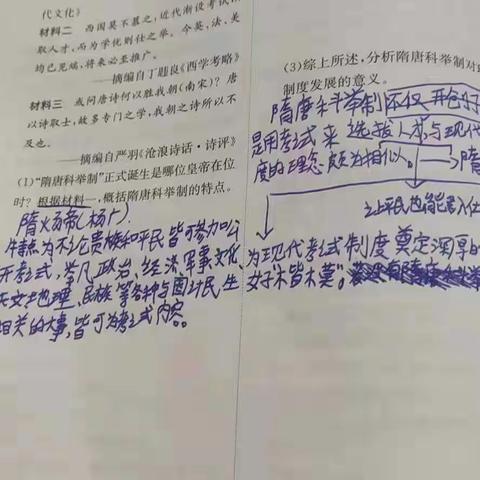 代文化》
材料二 西国莫不慕之,近代渐设考试
取人才,而为学优则仕之举。今英、法、美
均已见端,将来必至推广。
——摘编自丁韪良《西学考略》
材料三 或问唐诗何以胜我朝(南宋)?唐
以诗取士,故多专门之学,我朝之诗所以不
及也。
——摘编自严羽《沧浪诗话·诗评》
(1)“隋唐科举制”正式诞生是哪位皇帝在位
时?根据材料一,概括隋唐科举制的特点。
隋炀帝(杨广)。
特点为不论贵族和平民皆可参加公
开考试,举凡政治、经济、军事、文化、
天文地理、民族等各种与国计民生
相关的大事,皆可为考试内容。
(3)综上所述,分析隋唐科举制对
制度发展的意义。
隋唐科举制不仅开创
是用考试来选拔人才,与现代
度的理念颇为相似。 隋
让平民也能
为现代考试制度奠定深厚的